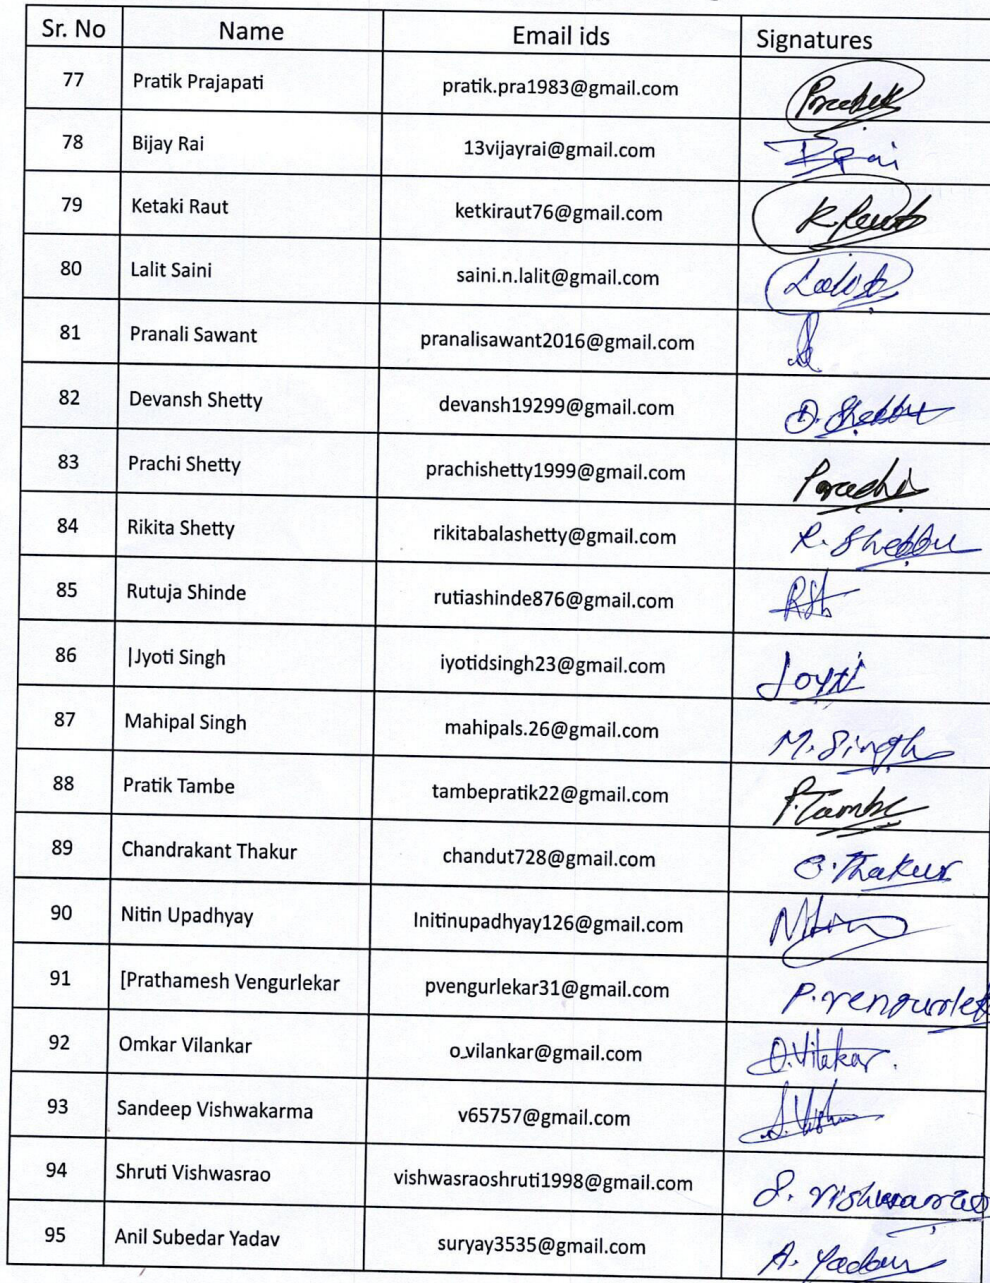 Sr. No Name Email ids Signatures
77 Pratik Prajapati pratik.pra1983@gmail.com Pratik
78 Bijay Rai 13vijayrai@gmail.com BRai
79 Ketaki Raut ketkiraut76@gmail.com K. Raut
80 Lalit Saini saini.n.lalit@gmail.com Lalit
81 Pranali Sawant pranalisawant2016@gmail.com
82 Devansh Shetty devansh19299@gmail.com D. Shetty
83 Prachi Shetty prachishetty1999@gmail.com Prachi
84 Rikita Shetty rikitabalashetty@gmail.com R. Shetty
85 Rutuja Shinde rutiashinde876@gmail.com
86 |Jyoti Singh iyotidsingh23@gmail.com Joyti
87 Mahipal Singh mahipals.26@gmail.com M. Singh
88 Pratik Tambe tambepratik22@gmail.com P. Tambe
89 Chandrakant Thakur chandut728@gmail.com C. Thakur
90 Nitin Upadhyay Initinupadhyay126@gmail.com Nitin
91 [Prathamesh Vengurlekar pvengurlekar31@gmail.com P. vengurlek
92 Omkar Vilankar o_vilankar@gmail.com O. Vilakar.
93 Sandeep Vishwakarma v65757@gmail.com
94 Shruti Vishwasrao vishwasraoshruti1998@gmail.com S. Vishwasrao
95 Anil Subedar Yadav suryay3535@gmail.com A. Yadav